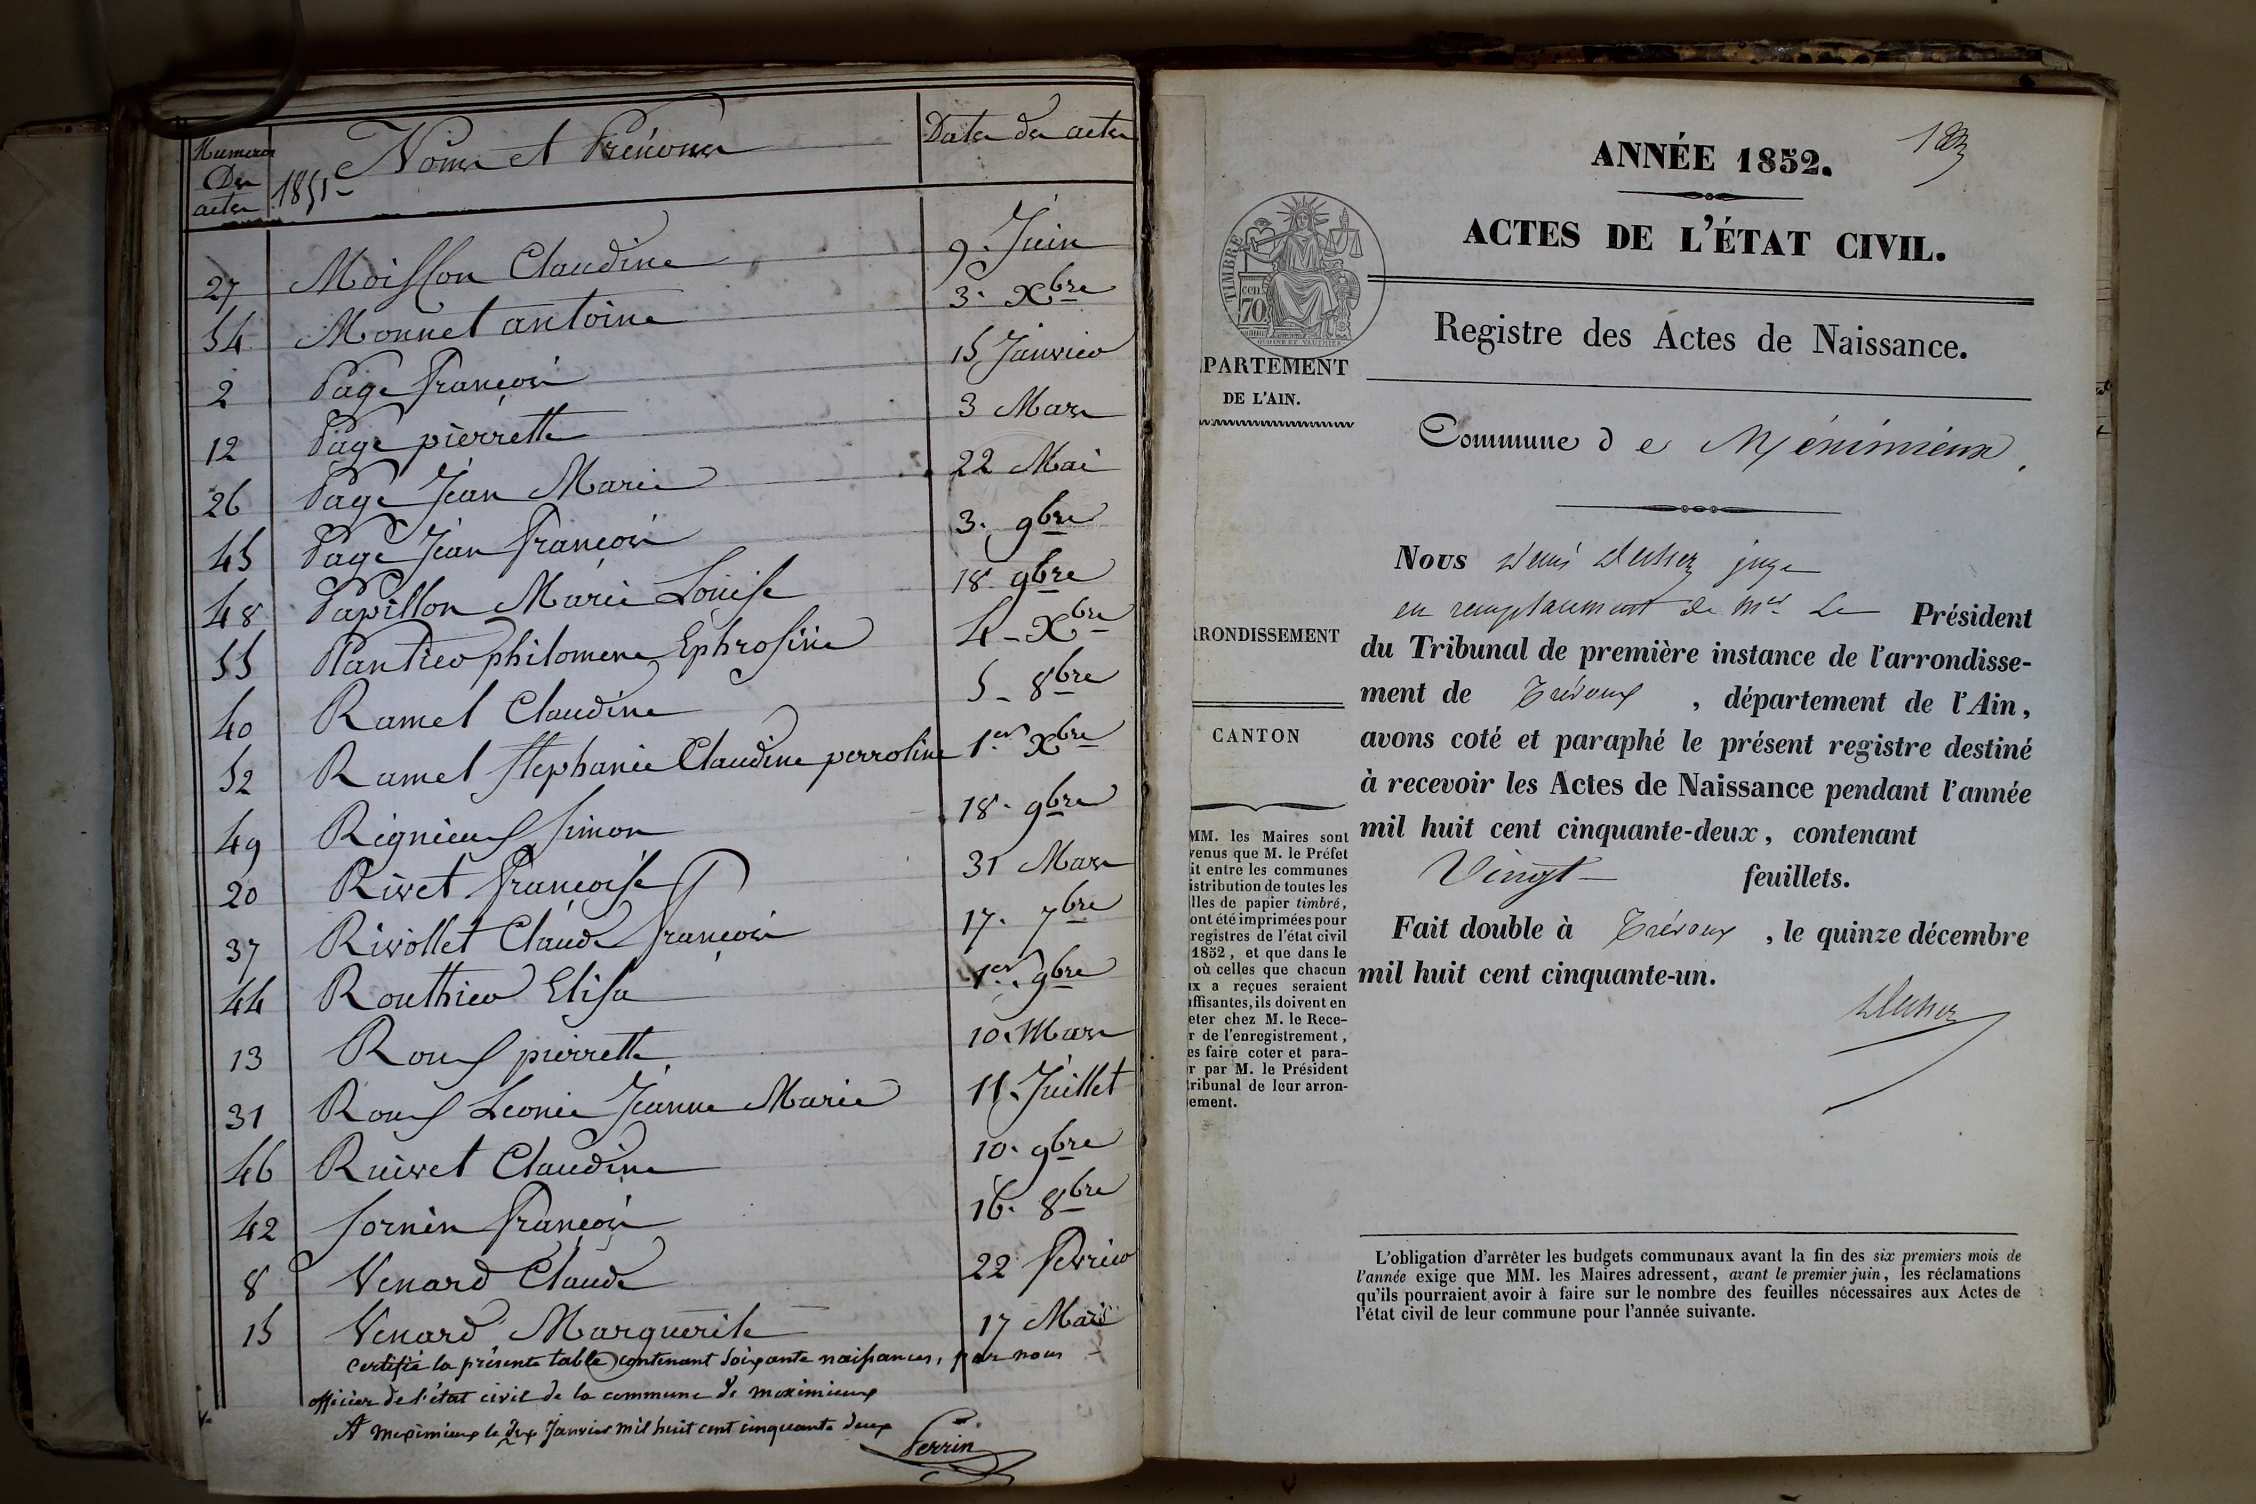 Numeros Des actes
1851
Noms et Prénoms
Dates des actes
27 Moisson Claudine 9. Juin
54 Monnet antoine 3. Xbre
2 Page françois 15 Janvier
12 Page pierrette 3 Mars
26 Page Jean Marie 22 Mai
45 Page Jean françois 3. 9bre
48 Papillon Marie Louise 18 9bre
55 Plantier philomene Ephrosine 4 - Xbre
40 Ramel Claudine 5 - 8bre
52 Ramel Stephanie Claudine perroline 1er Xbre
49 Rignieux Simon 18. 9bre
20 Rivet françoise 31 Mars
37 Rivollet Claude françois 17. 7bre
44 Routhier Elisa 1er. 9bre
13 Roux pierrette 10. Mars
31 Roux Leonie Jeanne Marie 11. Juillet
46 Ruivet Claudine 10. 9bre
42 Sornin françois 16. 8bre
8 Venard Claude 22 fevrier
15 Venard Marguerite 17 Mars
certifié la présente table contenant soixante naissances, par nous
officier de l'état civil de la commune de meximieux
A meximieux le dix Janvier mil huit cent cinquante deux
Perrin
ANNÉE 1852.
ACTES DE L'ÉTAT CIVIL.
TIMBRE
cen
70
PARTEMENT
DE L'AIN.
Registre des Actes de Naissance.
Commune de Méximieux.
RRONDISSEMENT
CANTON
MM. les Maires sont
venus que M. le Préfet
it entre les communes
istribution de toutes les
lles de papier timbré,
ont été imprimées pour
registres de l'état civil
1852, et que dans le
où celles que chacun
ux a reçues seraient
uffisantes, ils doivent en
eter chez M. le Rece-
r de l'enregistrement,
es faire coter et para-
r par M. le Président
tribunal de leur arron-
ement.
Nous juge
en remplacement de mr Le Président
du Tribunal de première instance de l'arrondisse-
ment de Trévoux, département de l'Ain,
avons coté et paraphé le présent registre destiné
à recevoir les Actes de Naissance pendant l'année
mil huit cent cinquante-deux, contenant
Vingt feuillets.
Fait double à Trévoux, le quinze décembre
mil huit cent cinquante-un.
L'obligation d'arrêter les budgets communaux avant la fin des six premiers mois de
l'année exige que MM. les Maires adressent, avant le premier juin, les réclamations
qu'ils pourraient avoir à faire sur le nombre des feuilles nécessaires aux Actes de
l'état civil de leur commune pour l'année suivante.